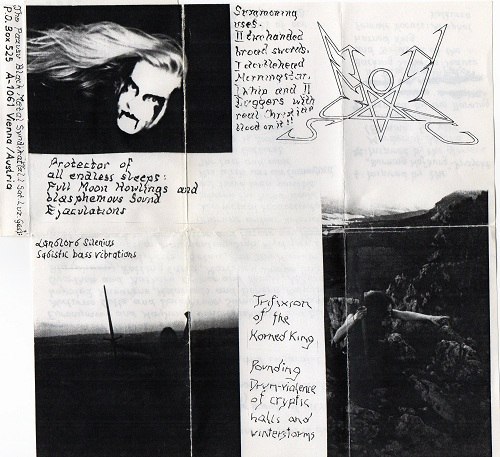 The Pazuzu Black Metal Syndikat
P.O. Box 525 A-1061 Vienna/Austria
Protector of
all endless sleeps:
Full Moon Howlings and
blasphemous Sound
Ejaculations
Summoning
uses:
II Two handed
broad swords,
1 devilehead
Morningstar,
1 Whip and II
Daggers with
real Christian
blood on it!!
Langlord Silenius
Sadistic bass vibrations
Trifixion
of the
Horned King
Pounding
Drum-violence
of cryptic
halls and
winterstorms